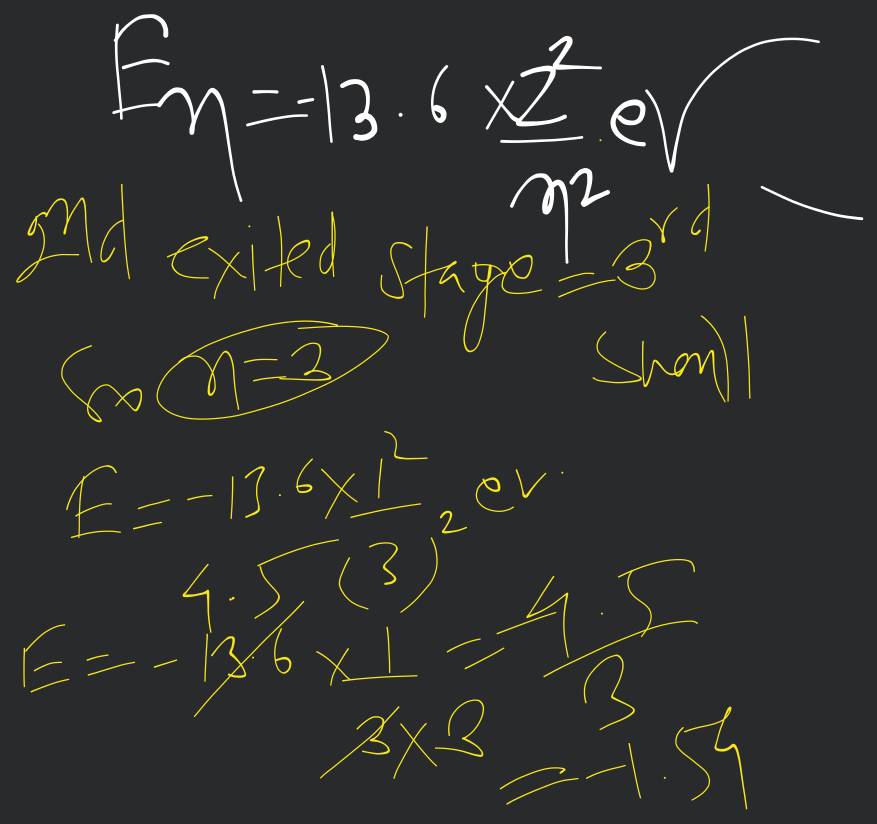 En = -13.6 × Z²/n² eV
2nd exited stage = 3rd shell
So n = 3
E = -13.6 × 1²/(3)² ev.
4.5
E = - 13.6 × 1/3×3 = 4.5/3
= -1.54